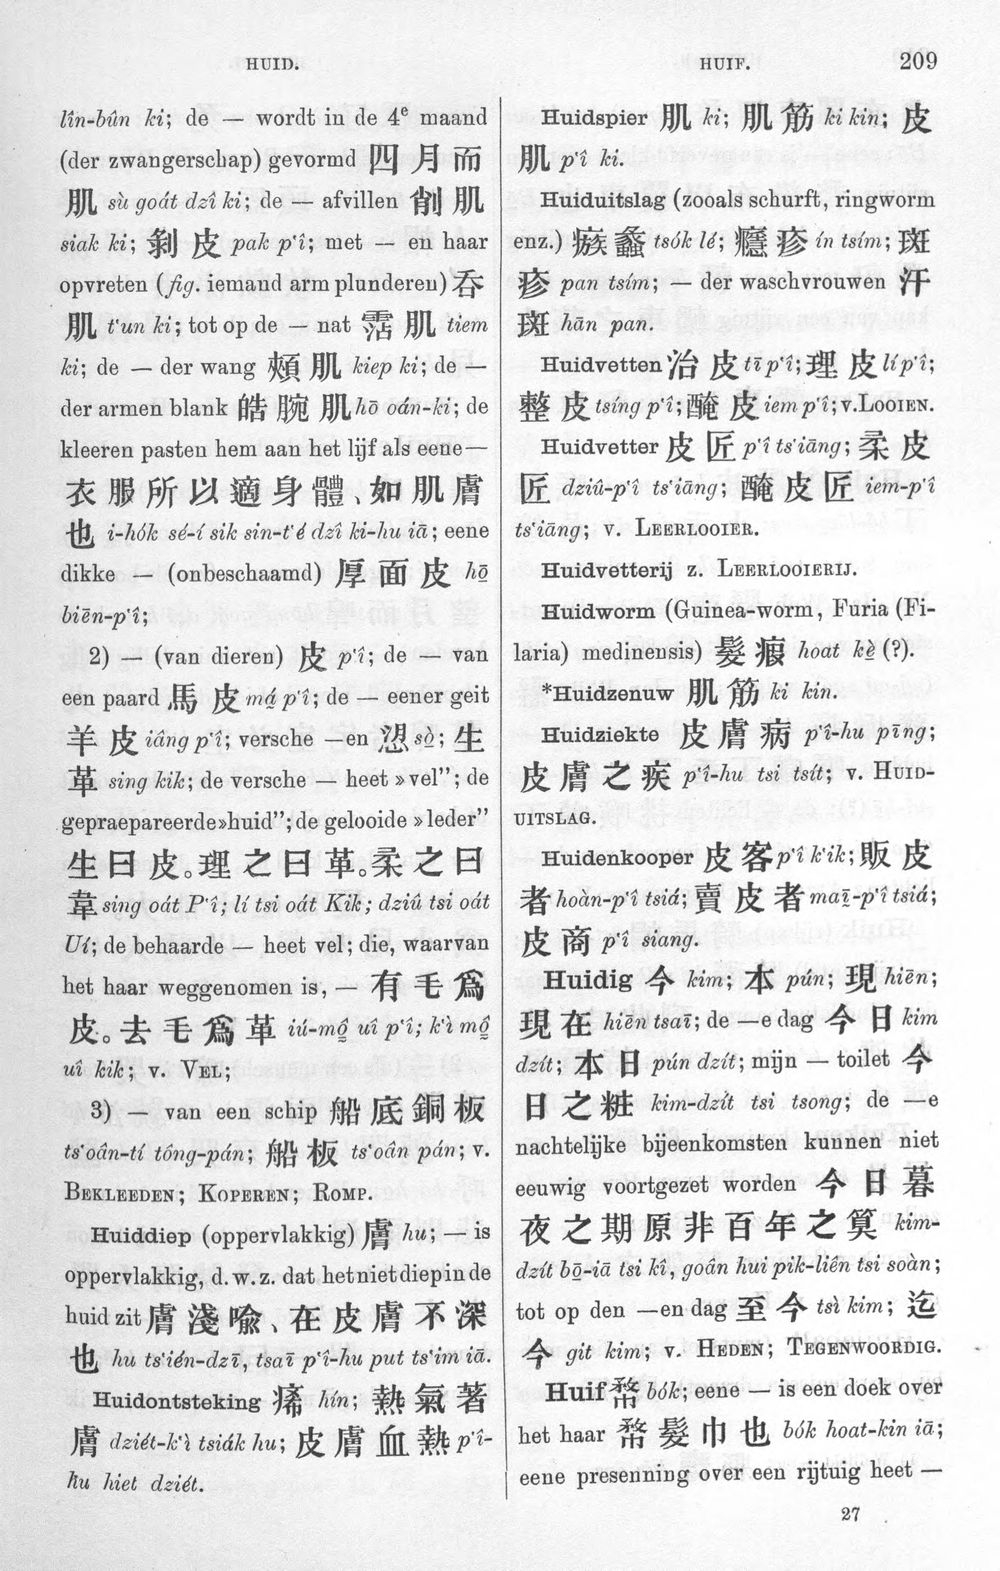 HUID.
HUIF.
209
lîn-bûn ki; de — wordt in de 4e maand
(der zwangerschap) gevormd 四月而
肌 sù goát dzî ki; de — afvillen 削肌
siak ki; 剝皮 pak p'î; met — en haar
opvreten (fig. iemand arm plunderen) 吞
肌 t'un ki; tot op de — nat 霑肌 tiem
ki; de — der wang 頰肌 kiep ki; de —
der armen blank 皓腕肌 hō oán-ki; de
kleeren pasten hem aan het lijf als eene —
衣服所以適身體、如肌膚
也 i-hók sé-í sik sin-t'é dzî ki-hu iā; eene
dikke — (onbeschaamd) 厚面皮 hō
biēn-p'î;
2) — (van dieren) 皮 p'î; de — van
een paard 馬皮 má p'î; de — eener geit
羊皮 iâng p'î; versche —en 愬 sò; 生
革 sing kik; de versche — heet »vel"; de
gepraepareerde »huid"; de gelooide »leder"
生曰皮。理之曰革。柔之曰
韋 sing oát P'î; lí tsi oát Kik; dziû tsi oát
Uí; de behaarde — heet vel; die, waarvan
het haar weggenomen is, — 有毛爲
皮。去毛爲革 iú-mô uî p'î; k'ì mô
uî kik; v. VEL;
3) — van een schip 船底銅板
ts'oân-tí tông-pán; 船板 ts'oân pán; v.
BEKLEEDEN; KOPEREN; ROMP.
Huiddiep (oppervlakkig) 膚 hu; — is
oppervlakkig, d. w. z. dat het niet diep in de
huid zit 膚淺喩、在皮膚不深
也 hu ts'ién-dzī, tsaī p'î-hu put ts'im iā.
Huidontsteking 痛 hín; 熱氣著
膚 dziét-k'ì tsiák hu; 皮膚血熱 p'î-
hu hiet dziét.
Huidspier 肌 ki; 肌筋 ki kin; 皮
肌 p'î ki.
Huiduitslag (zooals schurft, ringworm
enz.) 瘯蠡 tsók lé; 癮疹 ín tsím; 斑
疹 pan tsím; — der waschvrouwen 汗
斑 hān pan.
Huidvetten 治皮 tī p'î; 理皮 lí p'î;
整皮 tsíng p'î; 醃皮 iem p'î; v. LOOIEN.
Huidvetter 皮匠 p'î ts'iāng; 柔皮
匠 dziû-p'î ts'iāng; 醃皮匠 iem-p'î
ts'iāng; v. LEERLOOIER.
Huidvetterij z. LEERLOOIERIJ.
Huidworm (Guinea-worm, Furia (Fi-
laria) medinensis) 髮瘕 hoat kè (?).
*Huidzenuw 肌筋 ki kin.
Huidziekte 皮膚病 p'î-hu pīng;
皮膚之疾 p'î-hu tsi tsít; v. HUID-
UITSLAG.
Huidenkooper 皮客 p'î k'ik; 販皮
者 hoàn-p'î tsiá; 賣皮者 maī-p'î tsiá;
皮商 p'î siang.
Huidig 今 kim; 本 pún; 現 hiēn;
現在 hiēn tsaī; de —e dag 今日 kim
dzít; 本日 pún dzít; mijn — toilet 今
日之粧 kim-dzít tsi tsong; de —e
nachtelijke bijeenkomsten kunnen niet
eeuwig voortgezet worden 今日暮
夜之期原非百年之筭 kim-
dzít bō-iā tsi kî, goân hui pik-liên tsi soàn;
tot op den —en dag 至今 tsì kim; 迄
今 git kim; v. HEDEN; TEGENWOORDIG.
Huif 帗 bók; eene — is een doek over
het haar 帗髮巾也 bók hoat-kin iā;
eene presenning over een rijtuig heet —
27